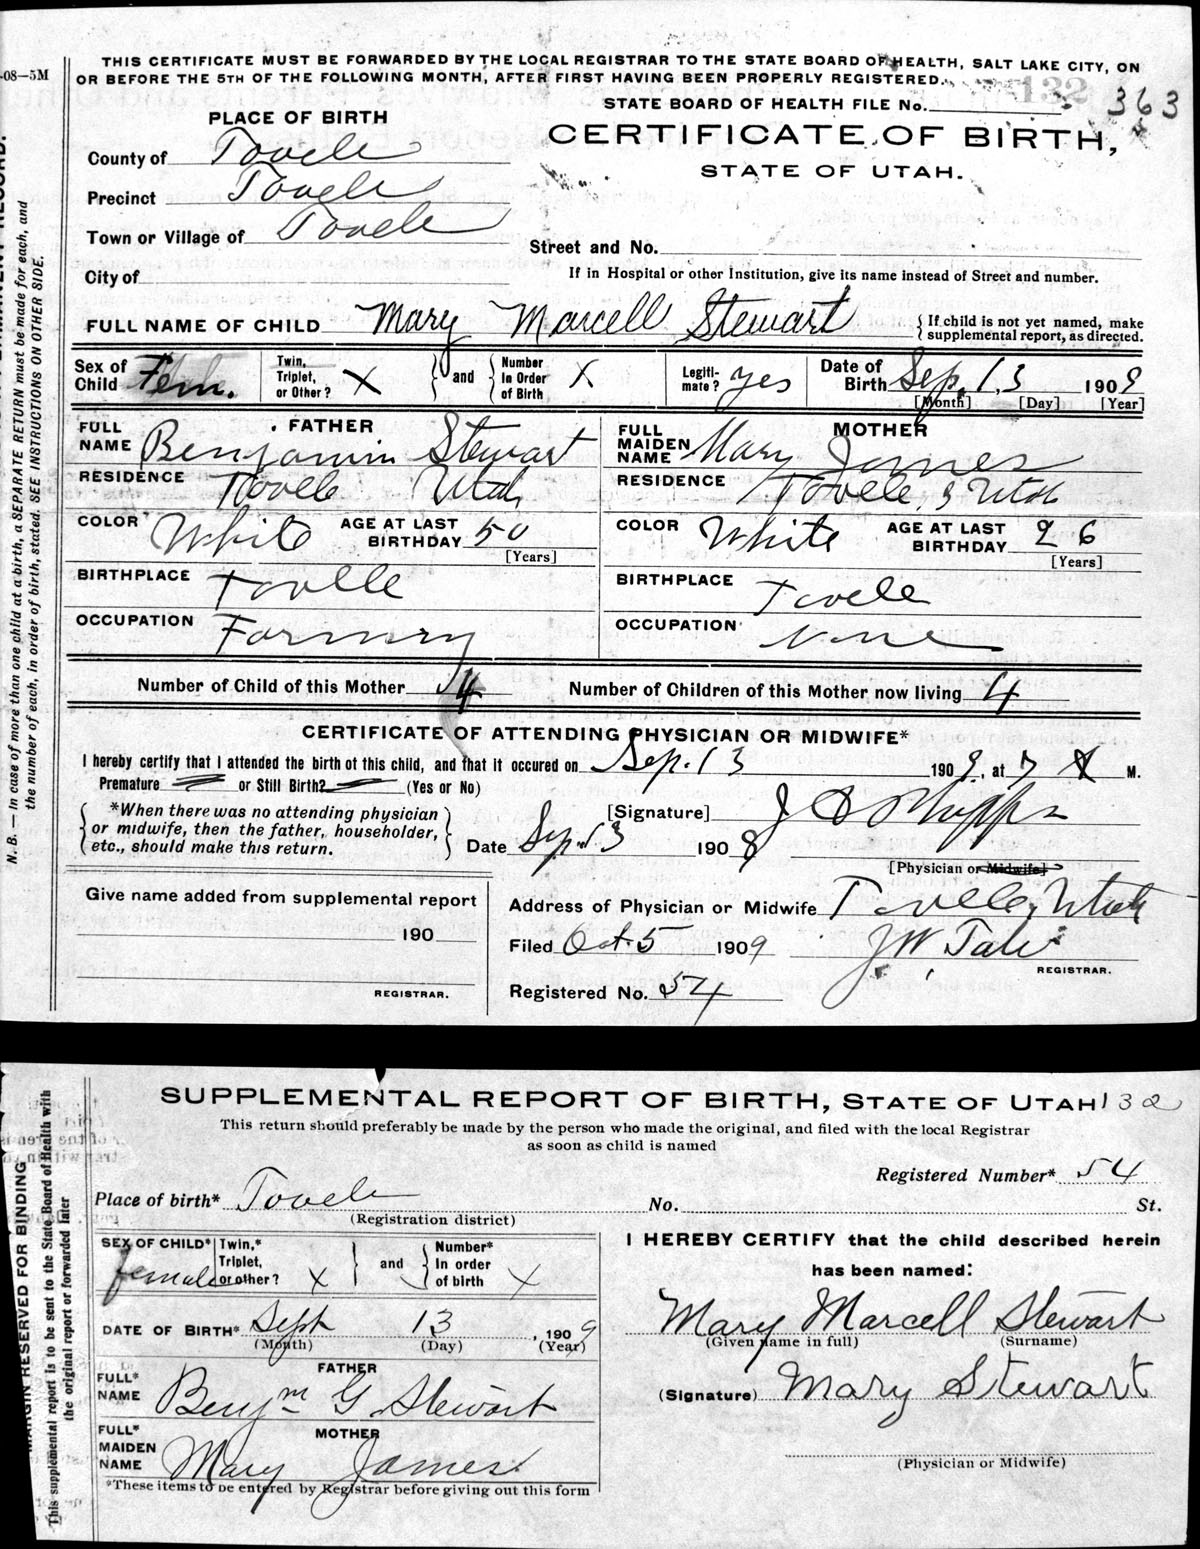 -08—5M
THIS CERTIFICATE MUST BE FORWARDED BY THE LOCAL REGISTRAR TO THE STATE BOARD OF HEALTH, SALT LAKE CITY, ON
OR BEFORE THE 5TH OF THE FOLLOWING MONTH, AFTER FIRST HAVING BEEN PROPERLY REGISTERED.
132
STATE BOARD OF HEALTH FILE No. 363
PLACE OF BIRTH
CERTIFICATE OF BIRTH,
STATE OF UTAH.
County of Tooele
Precinct Tooele
Town or Village of Tooele
Street and No.
City of
If in Hospital or other Institution, give its name instead of Street and number.
FULL NAME OF CHILD Mary Marcell Stewart
{If child is not yet named, make
supplemental report, as directed.
Sex of Child Fem.
Twin, Triplet, or Other? X
and
Number In Order of Birth X
Legiti- mate? yes
Date of Birth Sep. 13 1909
[Month] [Day] [Year]
FATHER
FULL NAME Benjamin Stewart
RESIDENCE Tooele Utah
COLOR White AGE AT LAST BIRTHDAY 50
[Years]
BIRTHPLACE Tooele
OCCUPATION Farming
MOTHER
FULL MAIDEN NAME Mary James
RESIDENCE Tooele, Utah
COLOR White AGE AT LAST BIRTHDAY 26
[Years]
BIRTHPLACE Tooele
OCCUPATION None
Number of Child of this Mother 4 Number of Children of this Mother now living 4
CERTIFICATE OF ATTENDING PHYSICIAN OR MIDWIFE*
I hereby certify that I attended the birth of this child, and that it occured on Sep. 13 1909, at 7 M.
Premature or Still Birth? (Yes or No)
{*When there was no attending physician
or midwife, then the father, householder,
etc., should make this return.}
[Signature] J A Phipps
Date Sep. 13 1909
[Physician or Midwife]
Give name added from supplemental report
190
REGISTRAR.
Address of Physician or Midwife Tooele, Utah
Filed Oct. 5 1909 J W Tate
REGISTRAR.
Registered No. 54
N. B. — In case of more than one child at a birth, a SEPARATE RETURN must be made for each, and
the number of each, in order of birth, stated. SEE INSTRUCTIONS ON OTHER SIDE.
SUPPLEMENTAL REPORT OF BIRTH, STATE OF UTAH 132
This return should preferably be made by the person who made the original, and filed with the local Registrar
as soon as child is named
Registered Number* 54
Place of birth* Tooele No. St.
(Registration district)
SEX OF CHILD* female
Twin,* Triplet, or other? X
and
Number* In order of birth X
DATE OF BIRTH* Sept 13, 1909
(Month) (Day) (Year)
FATHER
FULL* NAME Benjm G Stewart
MOTHER
FULL* MAIDEN NAME Mary James
*These items to be entered by Registrar before giving out this form
I HEREBY CERTIFY that the child described herein
has been named:
Mary Marcell Stewart
(Given name in full) (Surname)
(Signature) Mary Stewart
(Physician or Midwife)
MARGIN RESERVED FOR BINDING
This supplemental report is to be sent to the State Board of Health with
the original report or forwarded later